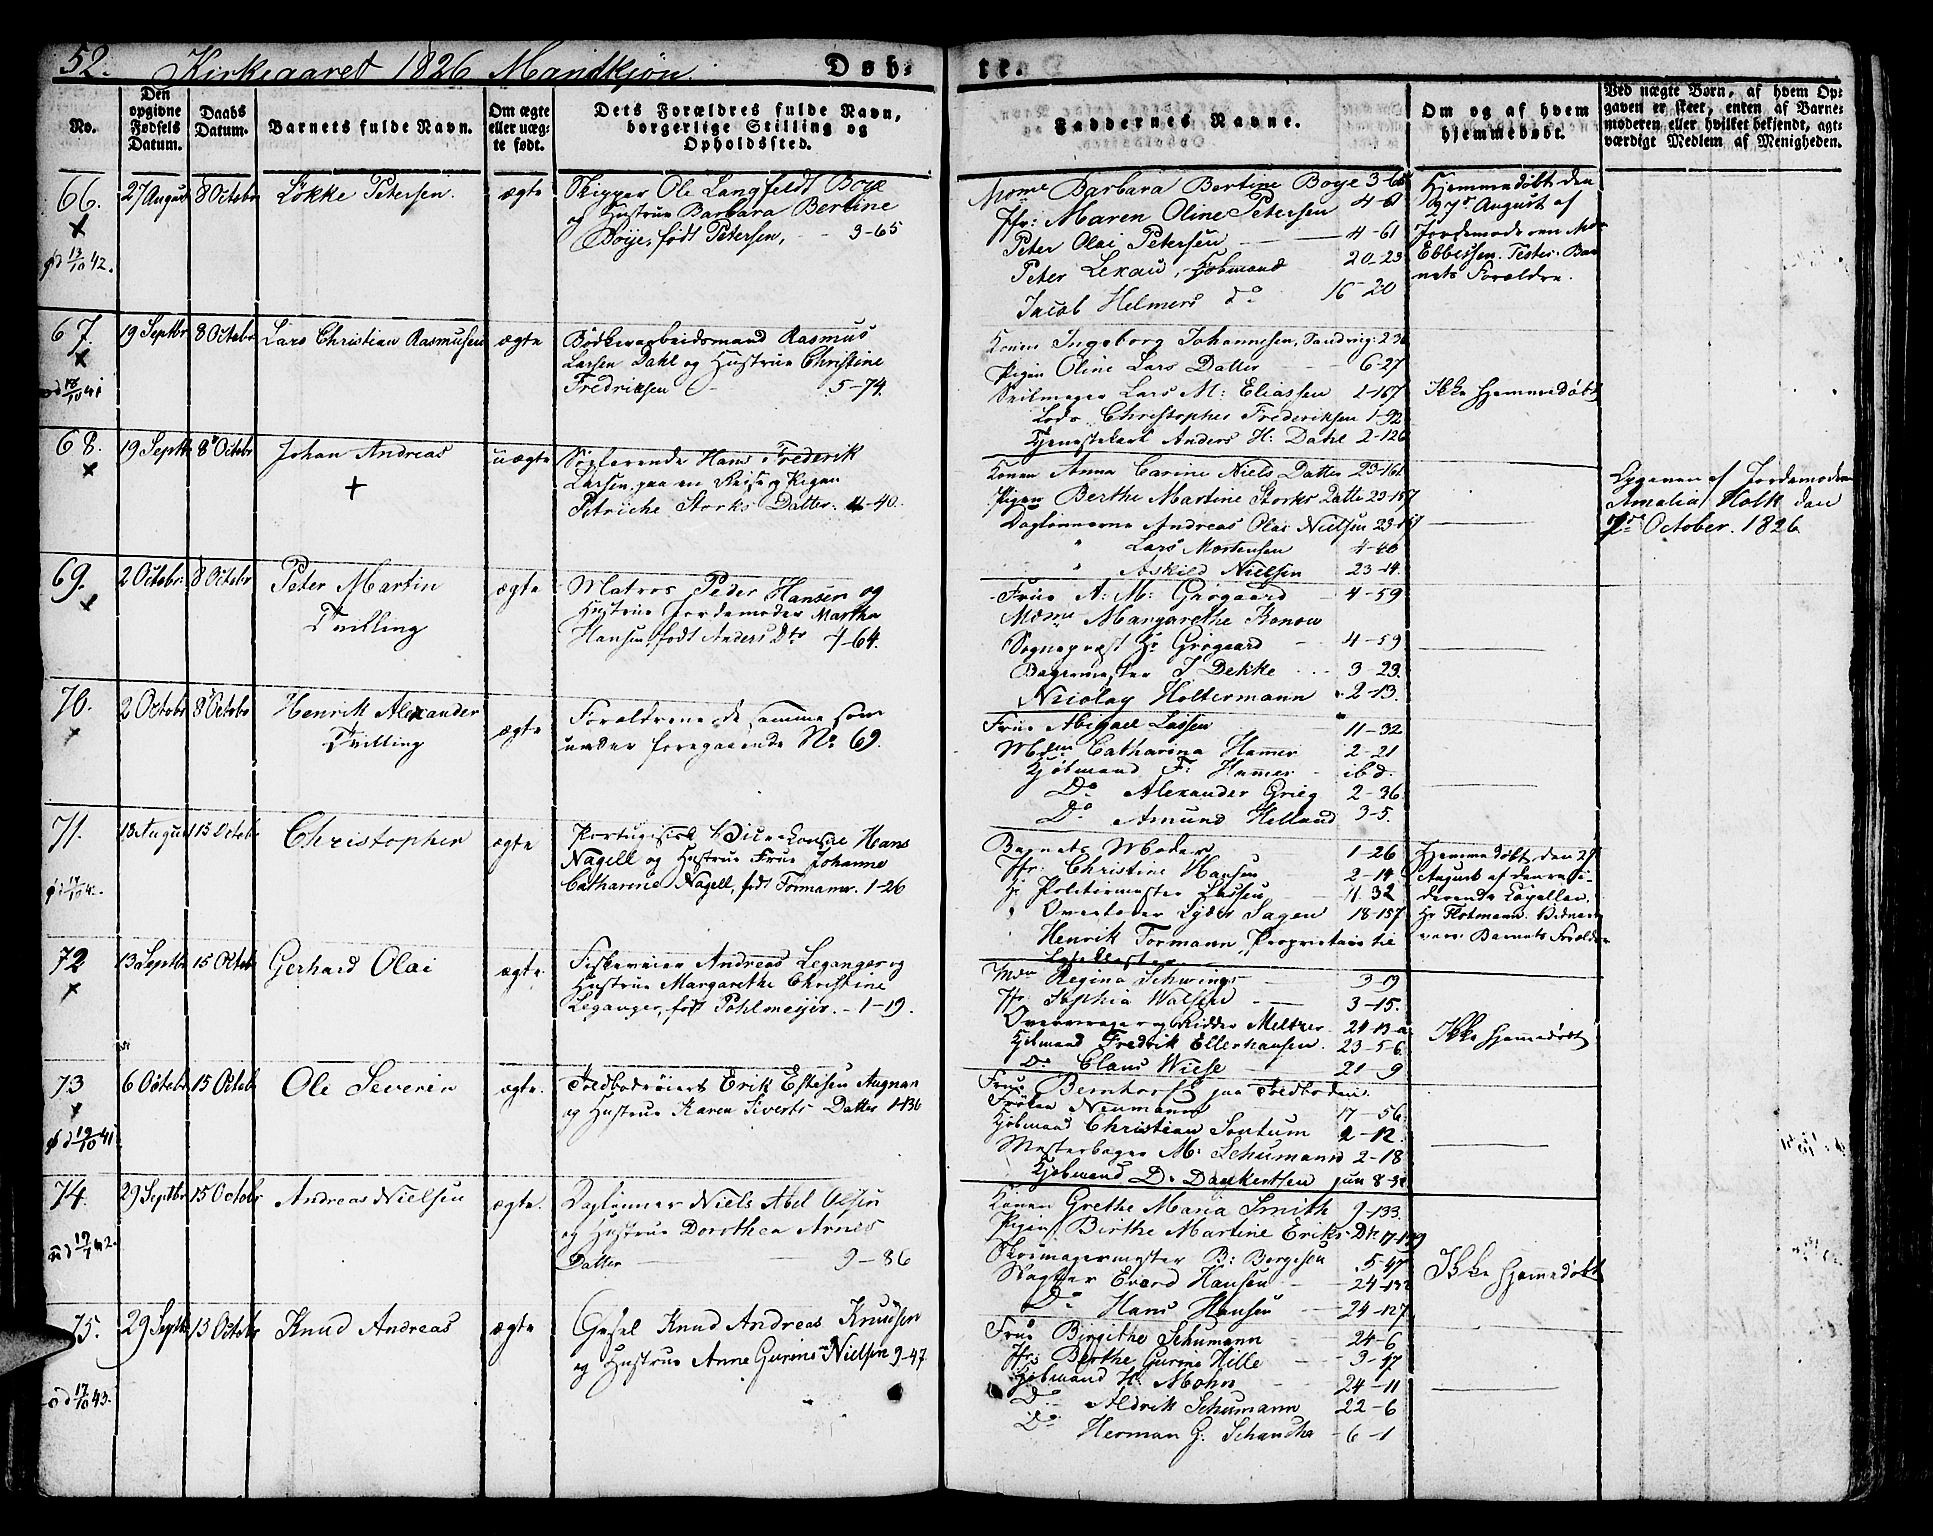 52. Kirkeaaret 1826 Mandkjøn. Døb-
te.
No.
Den opgivne Fødsels Datum.
Daabs Datum.
Barnets fulde Navn.
Om ægte eller uæg-te født.
Dets Forældres fulde Navn, borgerlige Stilling og Opholdssted.
Faddernes Navne.
Om og af hvem hjemmedøbt.
Ved uægte Børn, af hvem Op-gaven er skeet, enten af Barne-moderen eller hvilket bekjendt, agt-værdigt Medlem af Menigheden.
66. 27 August 8 Octobr Løkke Petersen. ægte
Skipper Ole Langfeldt Boye
og Hustrue Barbara Bertine
Boye, født Petersen, 3-65
Mdme Barbara Bertine Boye 3-65
Jfr: Maren Oline Petersen 4-61
Peter Olai Petersen 4-61
Peter Lexau, Kjøbmand 20-23
Jacob Helmers do 16-20
Hjemmedøbt den
27de August af
Jordemoderen
Ebbesen. Testes: Bar-
nets Forældre.
67. 19 Septbr 8 Octobr Lars Christian Rasmusen ægte
Bødkerarbeidsmand Rasmus
Larsen Dahl og Hustrue Christine
Fredriksen 5-74.
Konen Ingeborg Johannesen, Sandvig: 236
Pigen Oline Lars Datter 6-27
Seilmager Lars M: Eliassen 1-167
Lods Christopher Frederiksen 1-92
Tjenestekarl Anders H: Dahl 2-126
Ikke hjemmedøbt
68. 19 Septbr 8 Octobr Johan Andreas uægte
Søefarende Hans Frederik
Larsen, paa en Reise og Pigen
Petriche Storks Datter. 4-40.
Konen Anna Carine Niels Datter 23-161
Pigen Berthe Martine Storks Datter 23-157
Daglønnerne Andreas Olai Nielsen 23-151
" Lars Mortensen 4-40
" Askild Nielsen 23-14.
Opgiven af Jordemoderen
Amalia Holk den
7de October. 1826
69. 2 Octobr. 8 Octobr Peter Martin ægte
Tvilling
Matros Peder Hansen og
Hustrue Jordemoder Martha
Hansen, født Anders Dtr 4-64.
Frue A: M: Grøgaard 4-59
Mdme Margarethe Konow
Sognepræst Hr Grøgaard 4-59
Bagermester J Dekke 3-23.
Nicolay Holtermann 2-13.
70. 2 Octobr 8 Octobr Henrik Alexander ægte
Tvilling
Forældrene de samme som
under foregaaende No 69.
Frue Abigael Lassen 11-32
Mdme Catharina Hamer 2-21
Kjøbmand F: Hamer ibd.
Do Alexander Grieg 2-36.
Do Amund Helland 3-5.
71. 13 August 15 Octobr Christopher ægte
Portugisisk Vice Consul Hans
Nagell og Hustrue Frue Johanne
Catharine Nagell, født Formann. 1-26
Barnets Moder 1-26
Jfr. Christine Hansen 2-14
Hr Politiemester Lassen 11-32
" Overlærer Lyder Sagen 18-157
Henrik Formann, Proprietair til
Lysekloster
Hjemmedøbt den 27
August af den resi-
derende Capellan
Hr Flotmann. Vidner
vare Barnets Forældre
72 13 Septbr 15 Octobr Gerhard Olai ægte.
Fiskeveier Andreas Leganger og
Hustrue Margarethe Christine
Leganger, født Pohlmeijer. - 1-19.
Mdm Regina Schwings 3-19
Jfr Sophia Walsen 3-15.
Overvrager og Ridder Meltzer 24-13-a
Kjøbmand Fredrik Ellerhausen. 23-56
Do Claus Wiese 21-9
Ikke hjemmedøbt
73 6 Octobr 15 Octobr Ole Severin ægte.
Toldbodrøiert Erik Estesen Augnar
og Hustrue Karen Siverts Datter 1-136
Frue Bernhoft paa Toldboden.
Frøken Neumann 17-56.
Kjøbmand Christian Sontum 2-12.
Mesterbager M: Schumann 2-18
Kjøbmand D. Dankertsen jun 8-32
74. 29 Septbr 15 Octobr Andreas Nielsen ægte.
Daglønner Niels Abel Olsen
og Hustrue Dorothea Arnes
Datter 9-86
Konen Grethe Maria Smith 9-133.
Pigen Berthe Martine Eriks Dtr 17-149
Skomagermester B: Børgesen 5-47
Slagter Everd Hansen 24-132
Do Hans Hansen 24-127
Ikke hjemmedøbt
75. 29 Septbr 15 Octobr Knud Andreas ægte
Gesel Knud Andreas Knudsen
og Hustrue Anne Gurine Nielsen 9-47
Frue Birgithe Schumann 24-6
Jfr. Berthe Gurine Hille 3-17
Kjøbmand H: Mohn 24-11
Do Aldrik Schumann 22-6
Do Herman G: Schandha 6-1